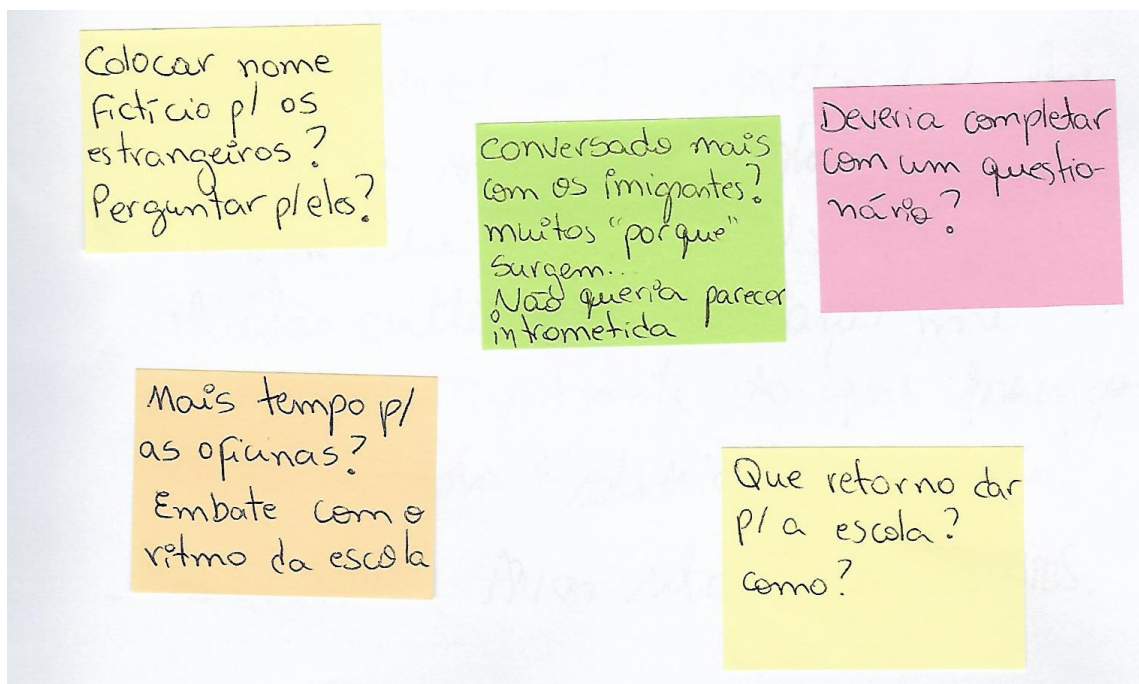 Colocar nome
fictício p/ os
estrangeiros?
Perguntar p/eles?
conversado mais
com os imigrantes?
muitos "porque"
surgem...
Não queria parecer
intrometida
Deveria completar
com um questio-
nário?
Mais tempo p/
as oficinas?
Embate com o
ritmo da escola
Que retorno dar
p/ a escola?
como?